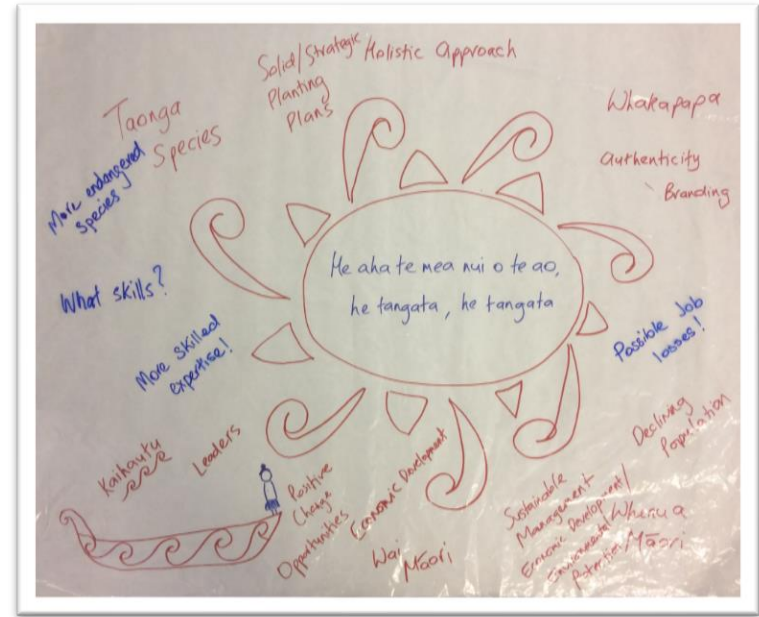 Solid/Strategic
Planting
Plans
Holistic Approach
Whakapapa
Authenticity
Branding
Taonga
Species
More endangered
Species!
What skills?
More skilled
expertise!
He aha te mea nui o te ao,
he tangata, he tangata
Possible Job
losses!
Declining
Population
Kaihautu
Leaders
Positive
Change
Opportunities
Economic Development
Wai
Māori
Sustainable
Management
Economic Development/
Environmental
Potential
Whenua
Māori